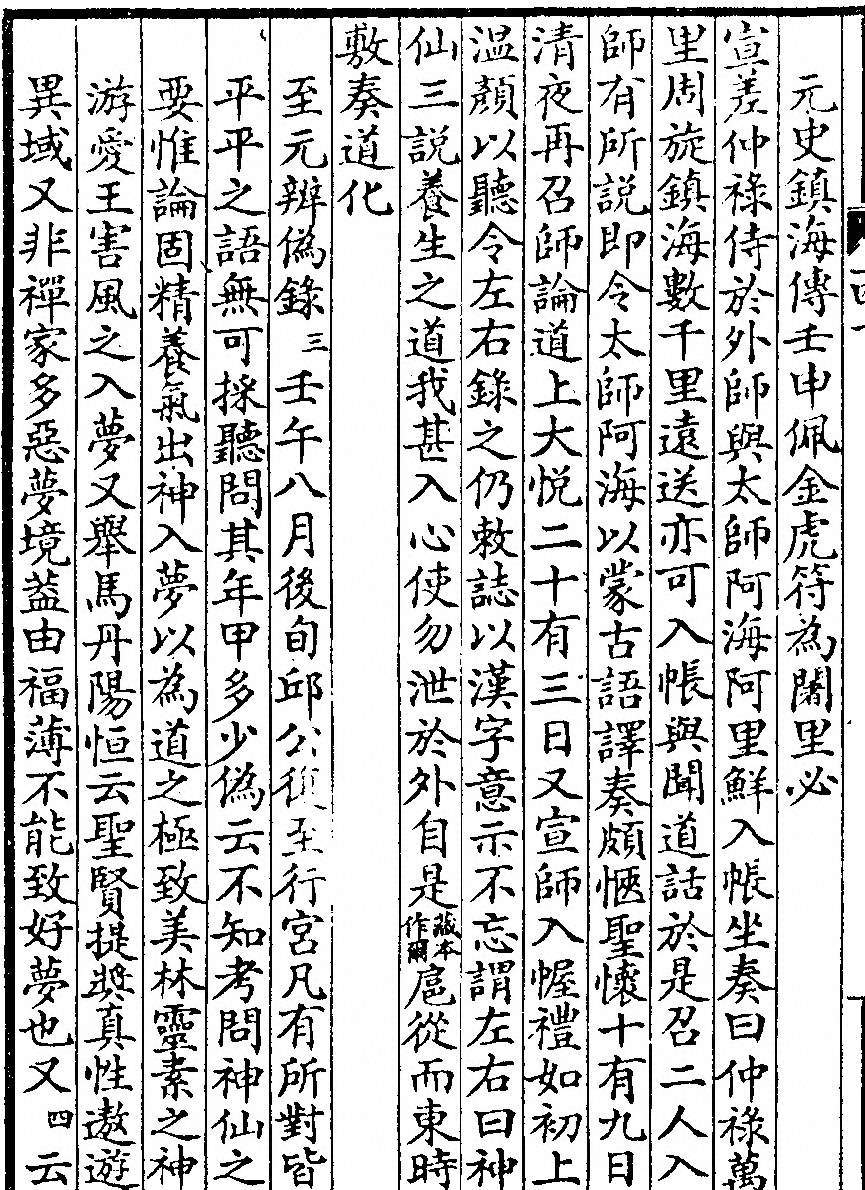 元史鎮海傳壬申佩金虎符為闍里必
宣差仲祿侍於外師與太師阿海阿里鮮入帳坐奏曰仲祿萬
里周旋鎮海數千里遠送亦可入帳與聞道話於是召二人入
師有所說即令太師阿海以蒙古語譯奏頗愜聖懷十有九日
清夜再召師論道上大悅二十有三日又宣師入幄禮如初上
溫顏以聽令左右錄之仍敕誌以漢字意示不忘謂左右曰神
仙三說養生之道我甚入心使勿泄於外自是藏本作爾扈從而東時
敷奏道化
至元辨偽錄三壬午八月後旬邱公復至行宮凡有所對皆
平平之語無可採聽問其年甲多少偽云不知考問神仙之
要惟論固精養氣出神入夢以為道之極致美林靈素之神
游愛王害風之入夢又舉馬丹陽恒云聖賢提奬真性遨遊
異域又非禪家多惡夢境蓋由福薄不能致好夢也又四云